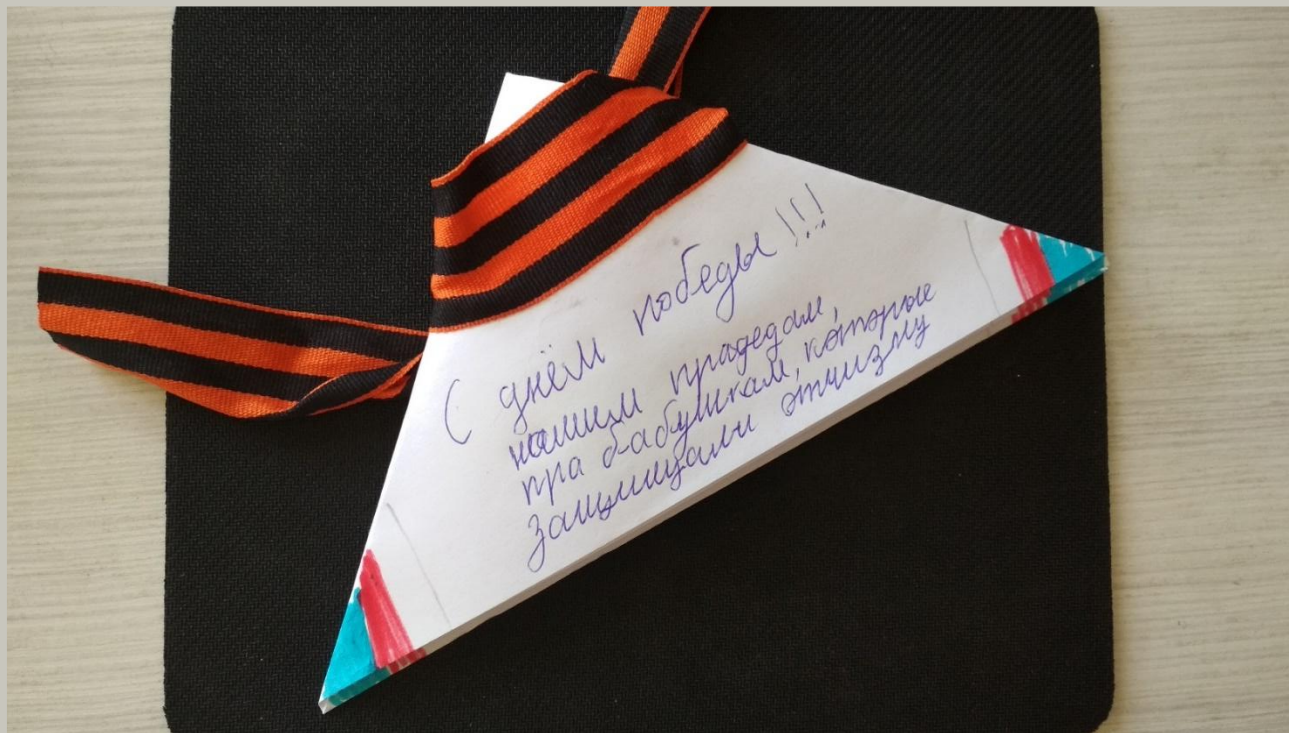 С днём победы!!!
нашим прадедам,
пра бабушкам, которые
защищали отчизну